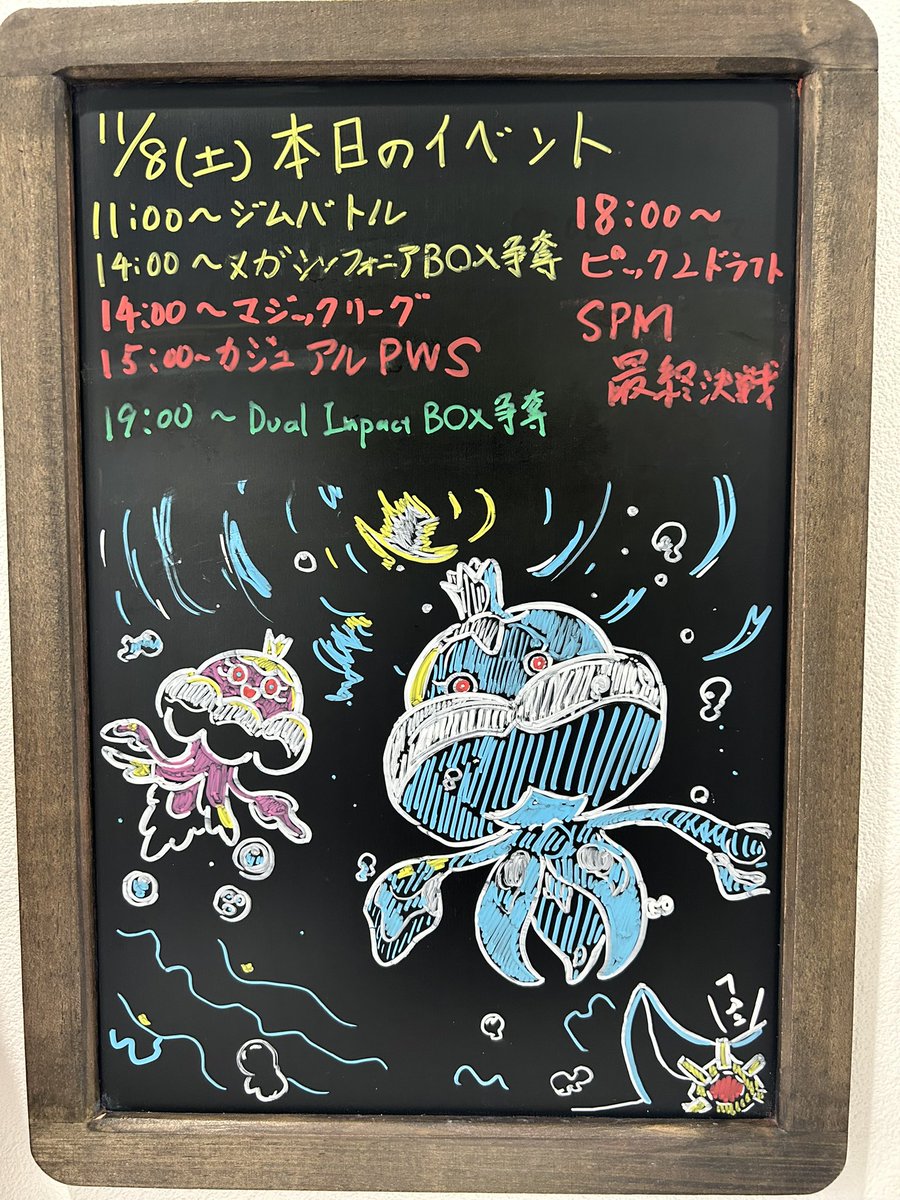 11/8(土) 本日のイベント
11:00～ジムバトル
14:00～メガシンフォニアBOX争奪
14:00～マジックリーグ
15:00～カジュアルPWS
19:00～Dual Impact BOX争奪
18:00～
ピック2ドラフト
SPM
最終決戦